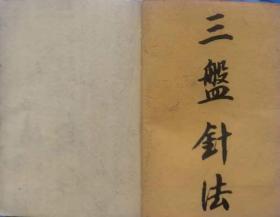 三盤針法